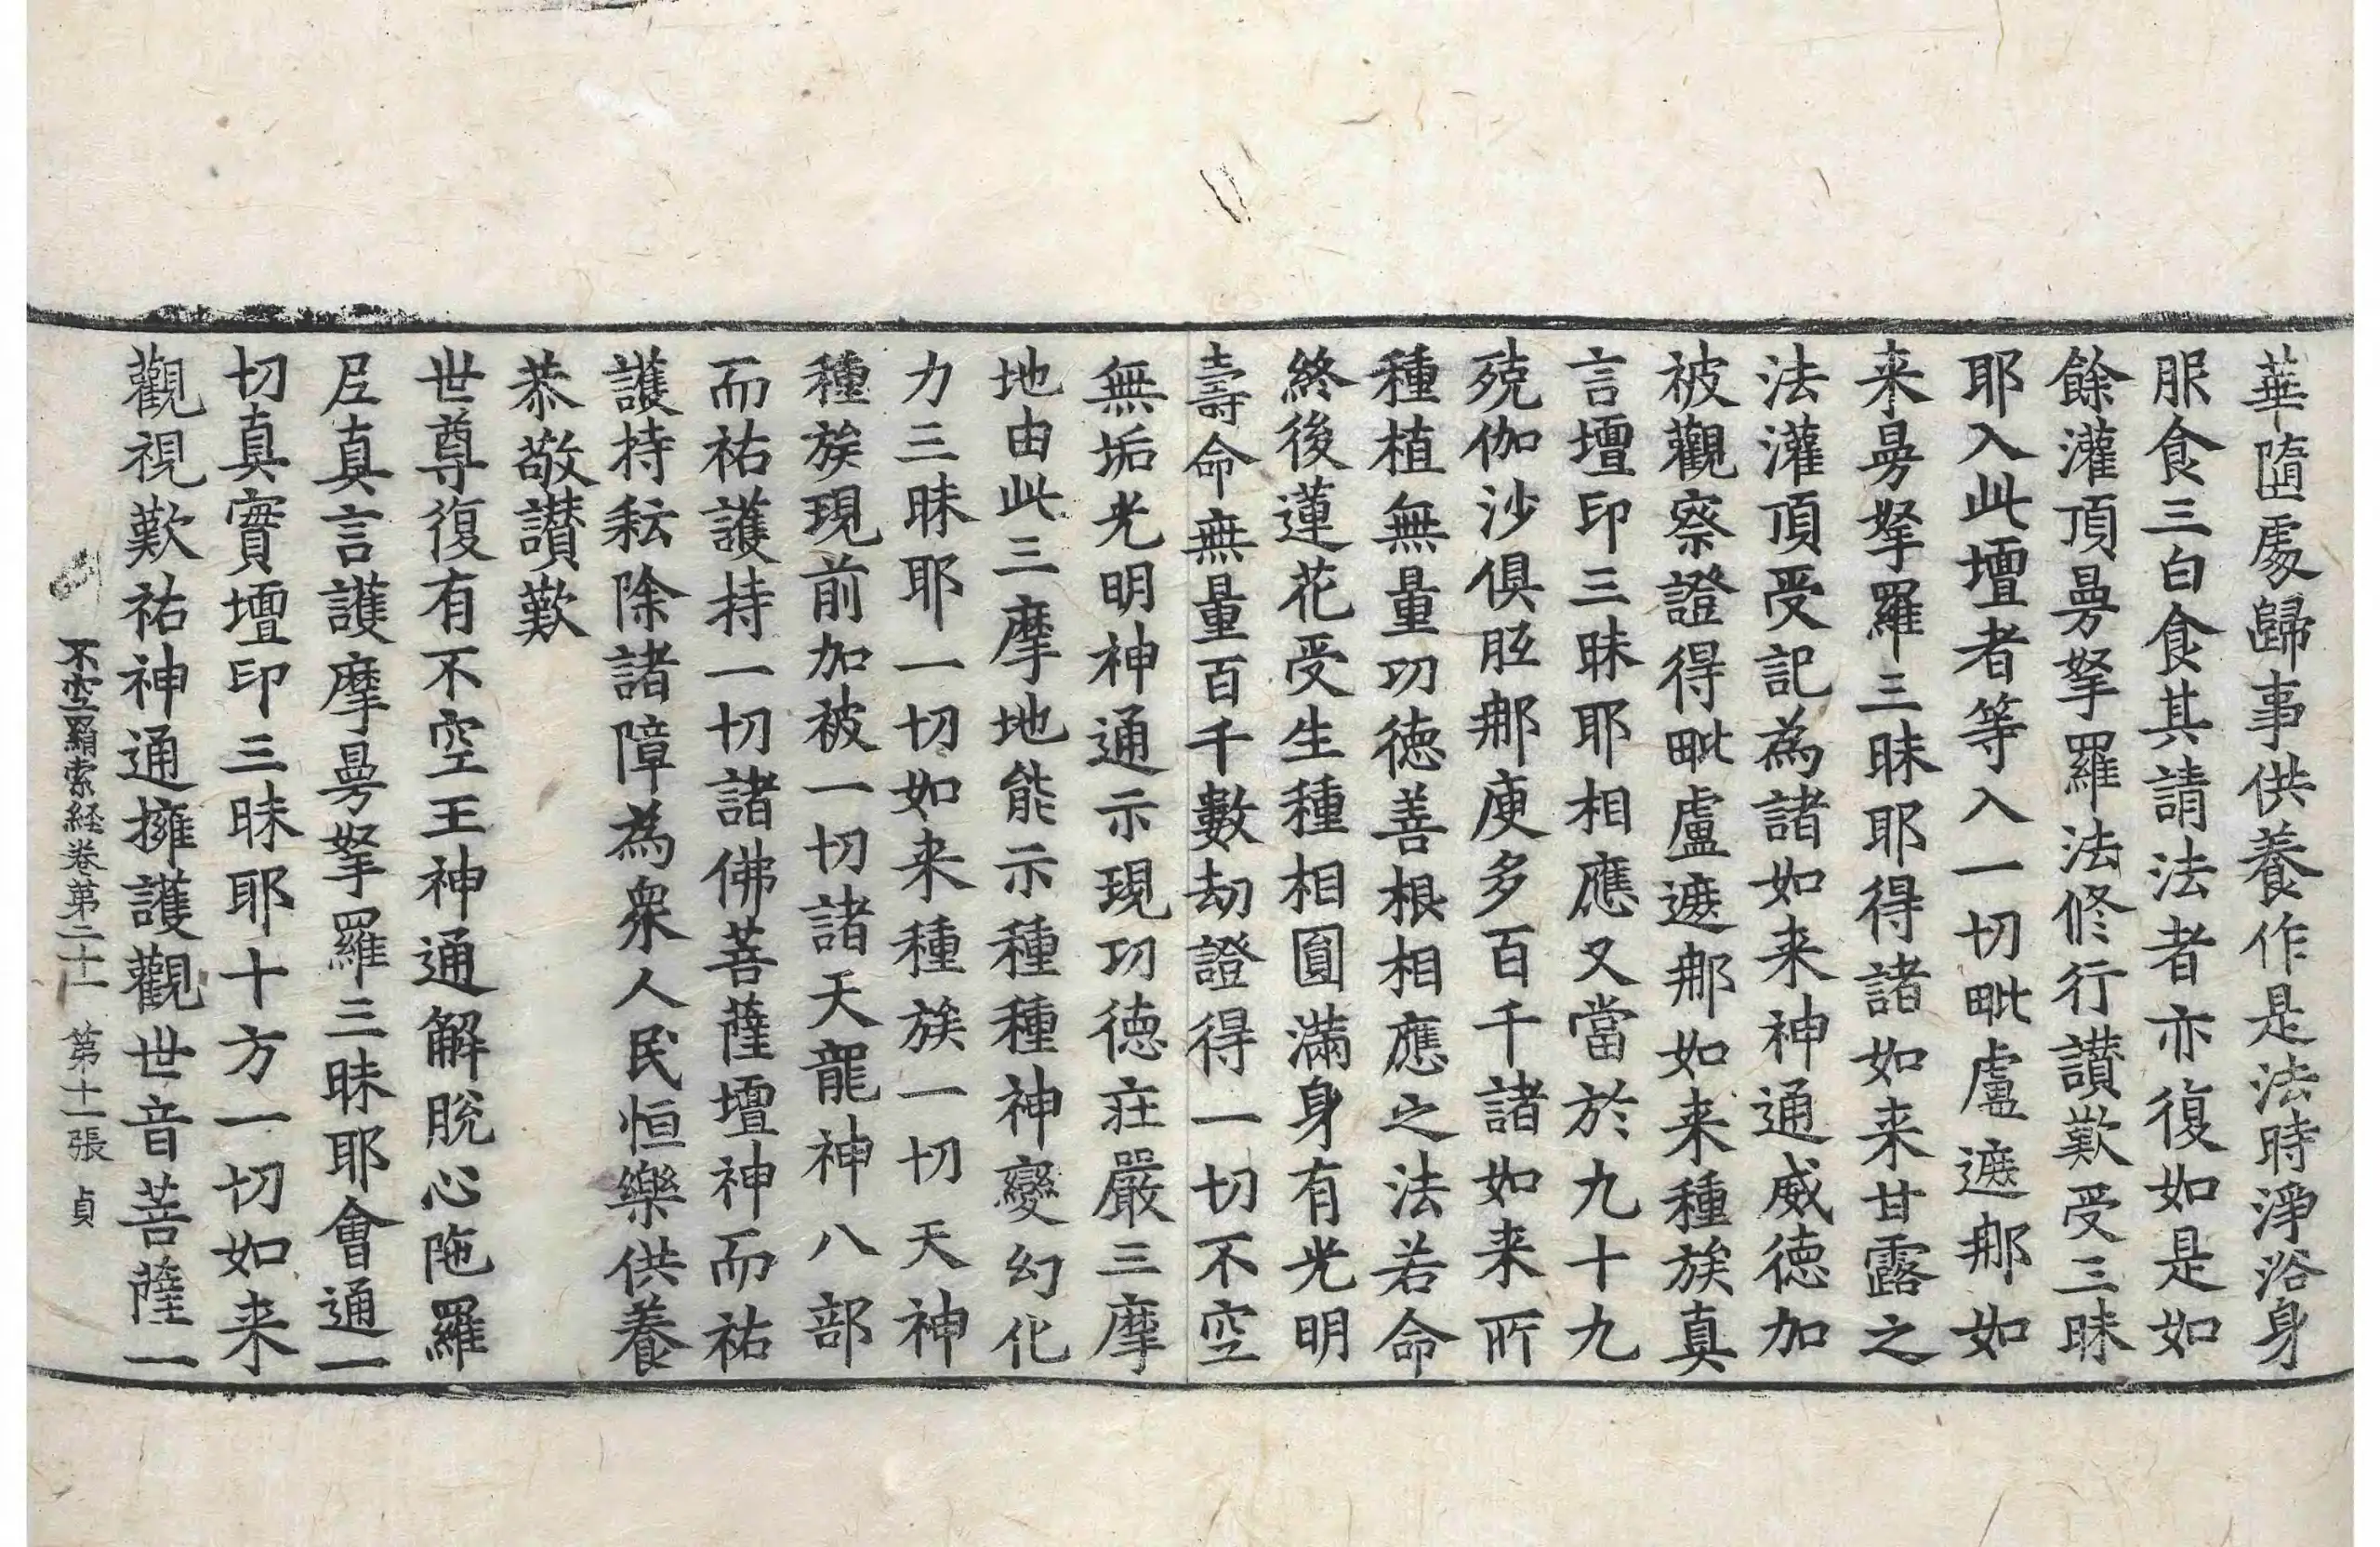 華隨處歸事供養作是法時淨浴身
服食三白食其請法者亦復如是如
餘灌頂曼拏羅法修行讃歎受三昧
耶入此壇者等入一切毗盧遮那如
来曼拏羅三昧耶得諸如来甘露之
法灌頂受記為諸如来神通威徳加
被觀察證得毗盧遮那如来種族真
言壇印三昧耶相應又當於九十九
殑伽沙俱胝那庾多百千諸如来所
種植無量功徳善根相應之法若命
終後蓮花受生種相圓滿身有光明
壽命無量百千數劫證得一切不空
無垢光明神通示現功徳莊嚴三摩
地由此三摩地能示種種神變幻化
力三昧耶一切如来種族一切天神
種族現前加被一切諸天龍神八部
而祐護持一切諸佛菩薩壇神而祐
護持耘除諸障為衆人民恒樂供養
恭敬讃歎
世尊復有不空王神通解脫心陁羅
尼真言護摩曼拏羅三昧耶會通一
切真實壇印三昧耶十方一切如来
觀視歎祐神通擁護觀世音菩薩一
不空羂索経卷第二十一 第十一張 貞